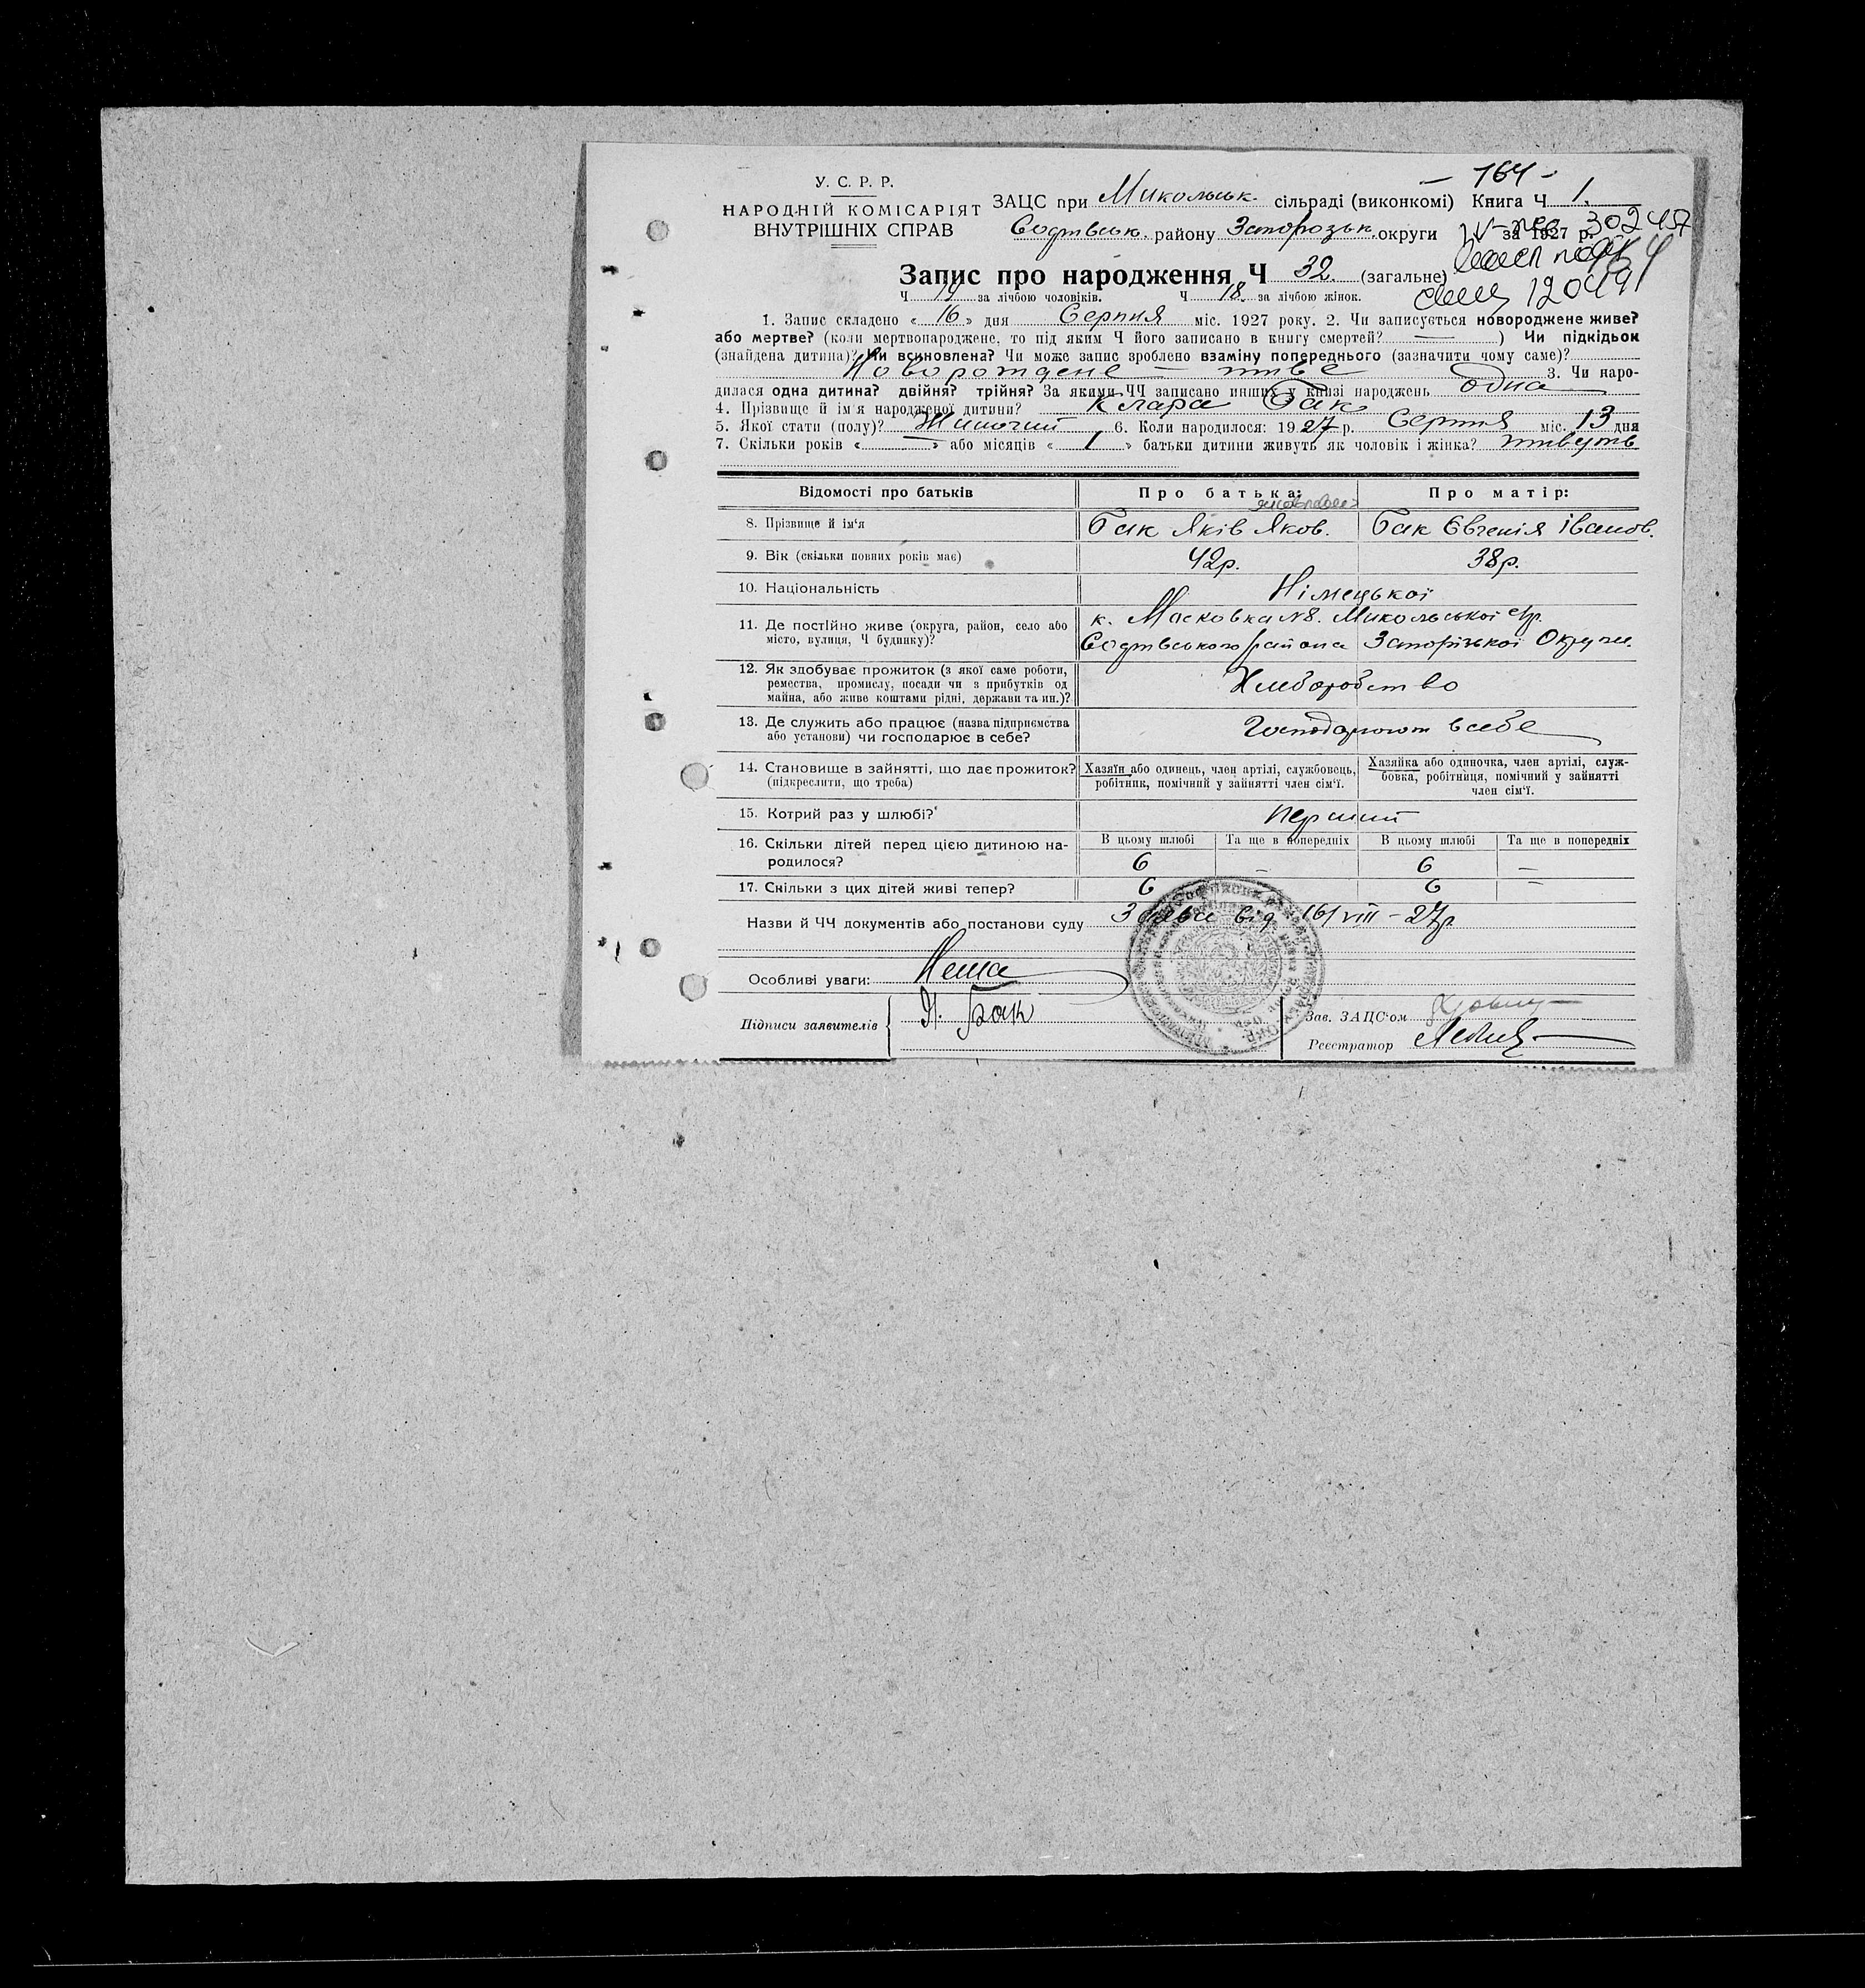 — 164 —
У. С. Р. Р.
НАРОДНІЙ КОМІСАРІЯТ
ВНУТРІШНІХ СПРАВ
ЗАЦС при Микольськ. сільраді (виконкомі) Книга Ч 1.
Софівськ. району Запорозьк. округи за 1927 р. 302457
Запис про народження Ч 32. (загальне)
120491
Ч 14 за лічбою чоловіків. Ч 18. за лічбою жінок.
1. Запис складено « 16 » дня Серпня міс. 1927 року. 2. Чи записується новороджене живе?
або мертве? (коли мертвонароджене, то під яким Ч його записано в книгу смертей? — ) Чи підкідьок
(знайдена дитина)? Чи всиновлена? Чи може запис зроблено взаміну попереднього (зазначити чому саме)?
Новорождене — живе 3. Чи наро-
дилася одна дитина? двійня? трійня? За якими ЧЧ записано инших у книзі народжень одна
4. Прізвище й ім'я народженої дитини? Клара Бак
5. Якої стати (полу)? Жиночий 6. Коли народилося: 1927 р. Серпня міс. 13 дня
7. Скільки років « — » або місяців « 1 » батьки дитини живуть як чоловік і жінка? живуть
Відомості про батьків Про батька: Про матір:
8. Прізвище й ім'я Бак Яків Яков. Бак Євгенія Іванов.
9. Вік (скільки повних років має) 42р. 38р.
10. Національність Німецької
11. Де постійно живе (округа, район, село або к. Масковка №8. Микольської с/р.
місто, вулиця, Ч будинку)? Софівського района Запорізької Округи.
12. Як здобуває прожиток (з якої саме роботи,
ремества, промислу, посади чи з прибутків од Хлеборобство
майна, або живе коштами рідні, держави та ин.)?
13. Де служить або працює (назва підприємства
або установи) чи господарює в себе? Господарюют в себе
14. Становище в зайнятті, що дає прожиток? Хазяїн або одинець, член артілі, службовець, Хазяйка або одиночка, член артілі, служ-
(підкреслити, що треба) робітник, помічний у зайнятті член сім'ї. бовка, робітниця, помічний у зайнятті
член сім'ї.
15. Котрий раз у шлюбі? перший
16. Скільки дітей перед цією дитиною на- В цьому шлюбі Та ще в попередніх В цьому шлюбі Та ще в попередніх
родилося? 6 — 6 —
17. Скільки з цих дітей живі тепер? 6 6 —
Назви й ЧЧ документів або постанови суду Заява від 16/VIII – 27р.
Особливі уваги: Нема
Підписи заявителів Я. Бак
Зав. ЗАЦС'ом
Реєстратор